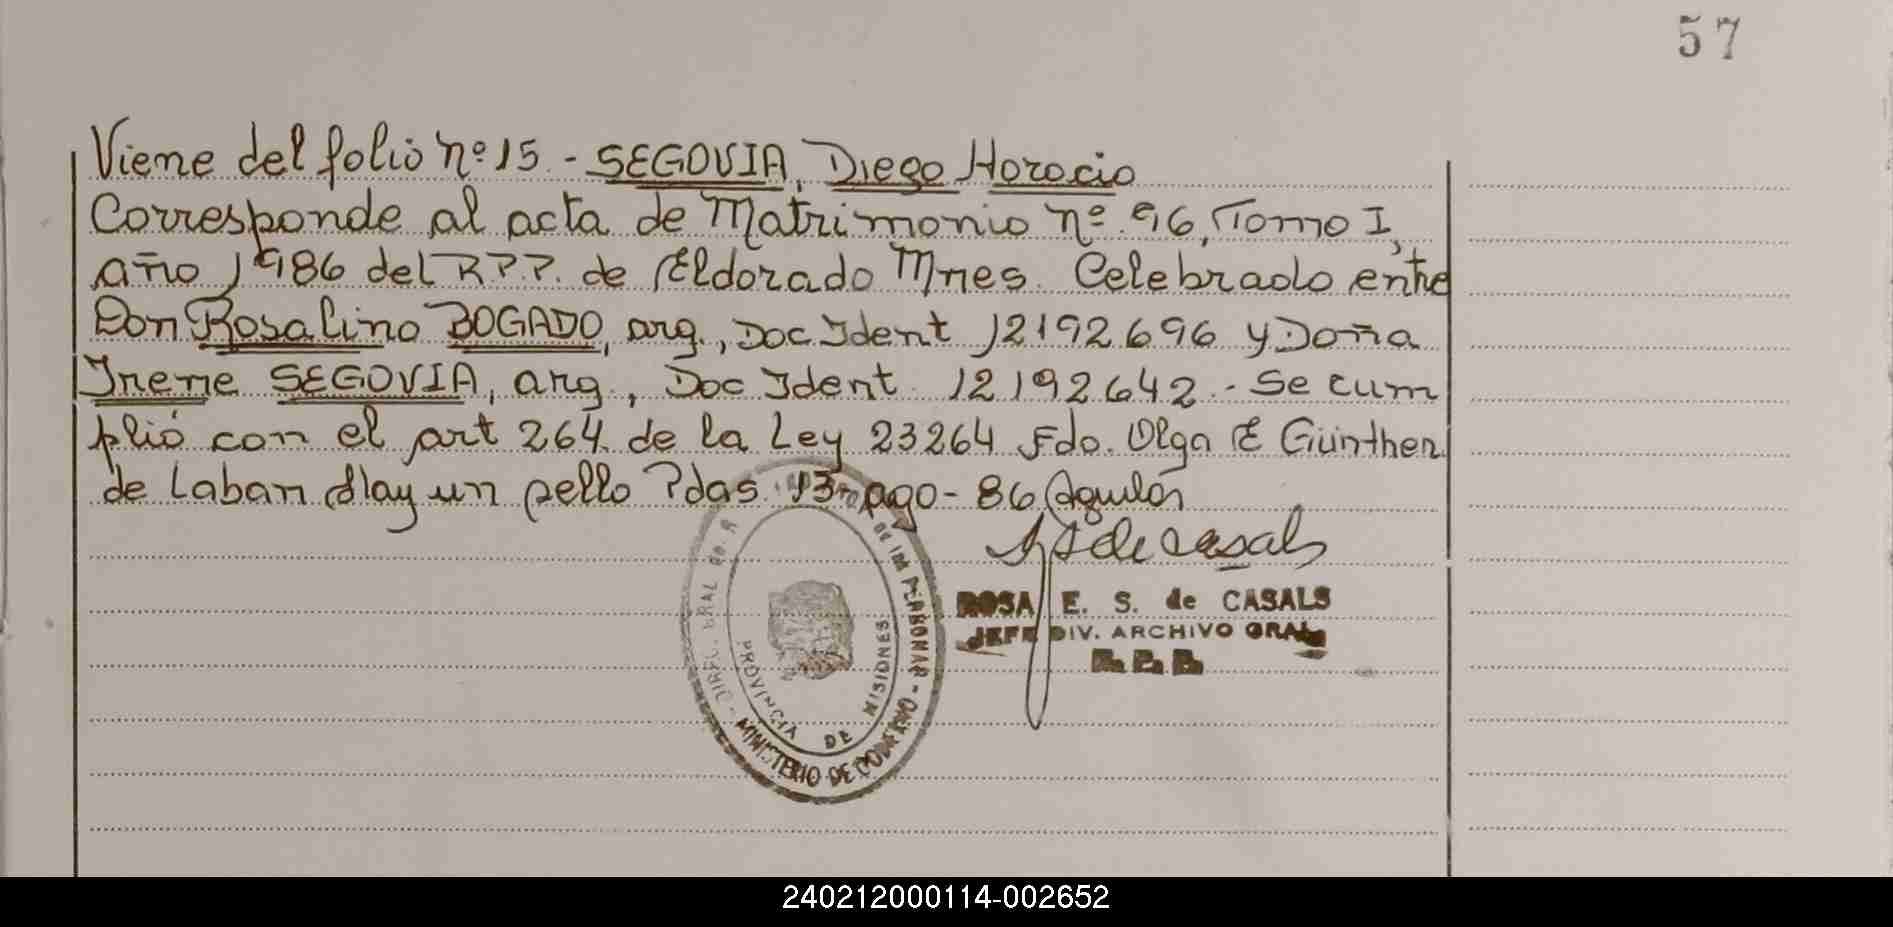 57
Viene del folio nº 15 - SEGOVIA, Diego Horacio
Corresponde al acta de Matrimonio nº 96, Tomo I,
año 1986 del R.P.P. de Eldorado Mnes. Celebrado entre
Don Rosalino BOGADO, arg., Doc Ident 12192696 y Doña
Irene SEGOVIA, arg, Doc Ident 12192642.- Se cum
plió con el art 264 de la Ley 23264 Fdo. Olga E Günther
de Laban Hay un sello Pdas 13-ago-86
de Casals
ROSA E. S. de CASALS
JEFE DIV. ARCHIVO GRAL
R. P. P.
DE LAS PERSONAS - MINISTERIO DE GOBIERNO
PROVINCIA DE MISIONES
240212000114-002652